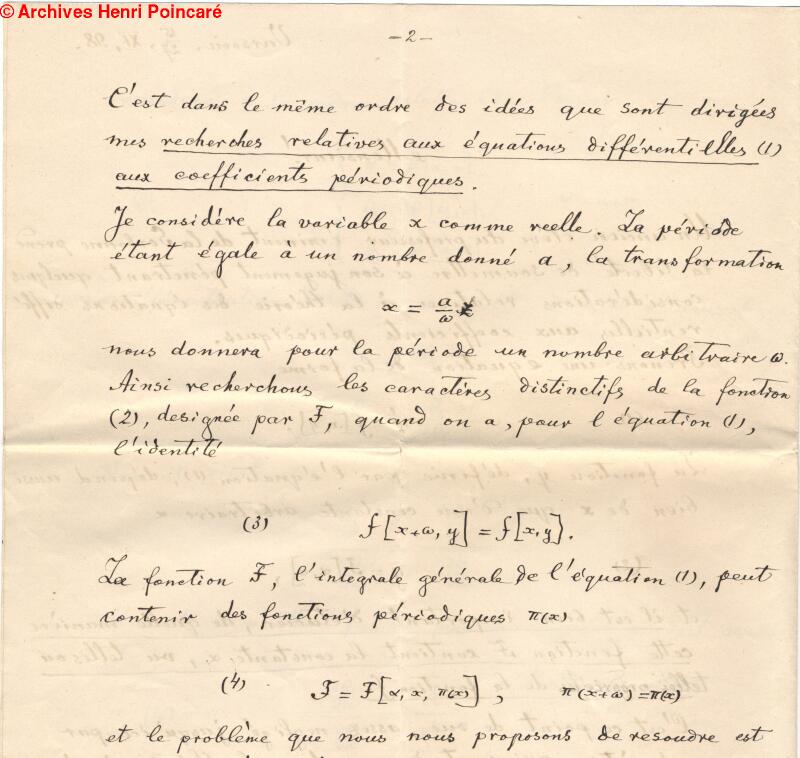 © Archives Henri Poincaré
– 2 –
C'est dans le même ordre des idées que sont dirigées
mes recherches relatives aux équations différentielles (1)
aux coefficients périodiques.
Je considère la variable x comme reelle. La période
étant égale à un nombre donné a, la transformation
x = a/ω
nous donnera pour la période un nombre arbitraire ω.
Ainsi recherchons les caractères distinctifs de la fonction
(2), designée par F, quand on a, pour l'équation (1),
l'identité
(3) f[x+ω, y] = f[x, y].
La fonction F, l'integrale générale de l'équation (1), peut
contenir des fonctions périodiques π(x)
(4) F = F[α, x, π(x)], π(x+ω) = π(x)
et le problème que nous nous proposons de resoudre est